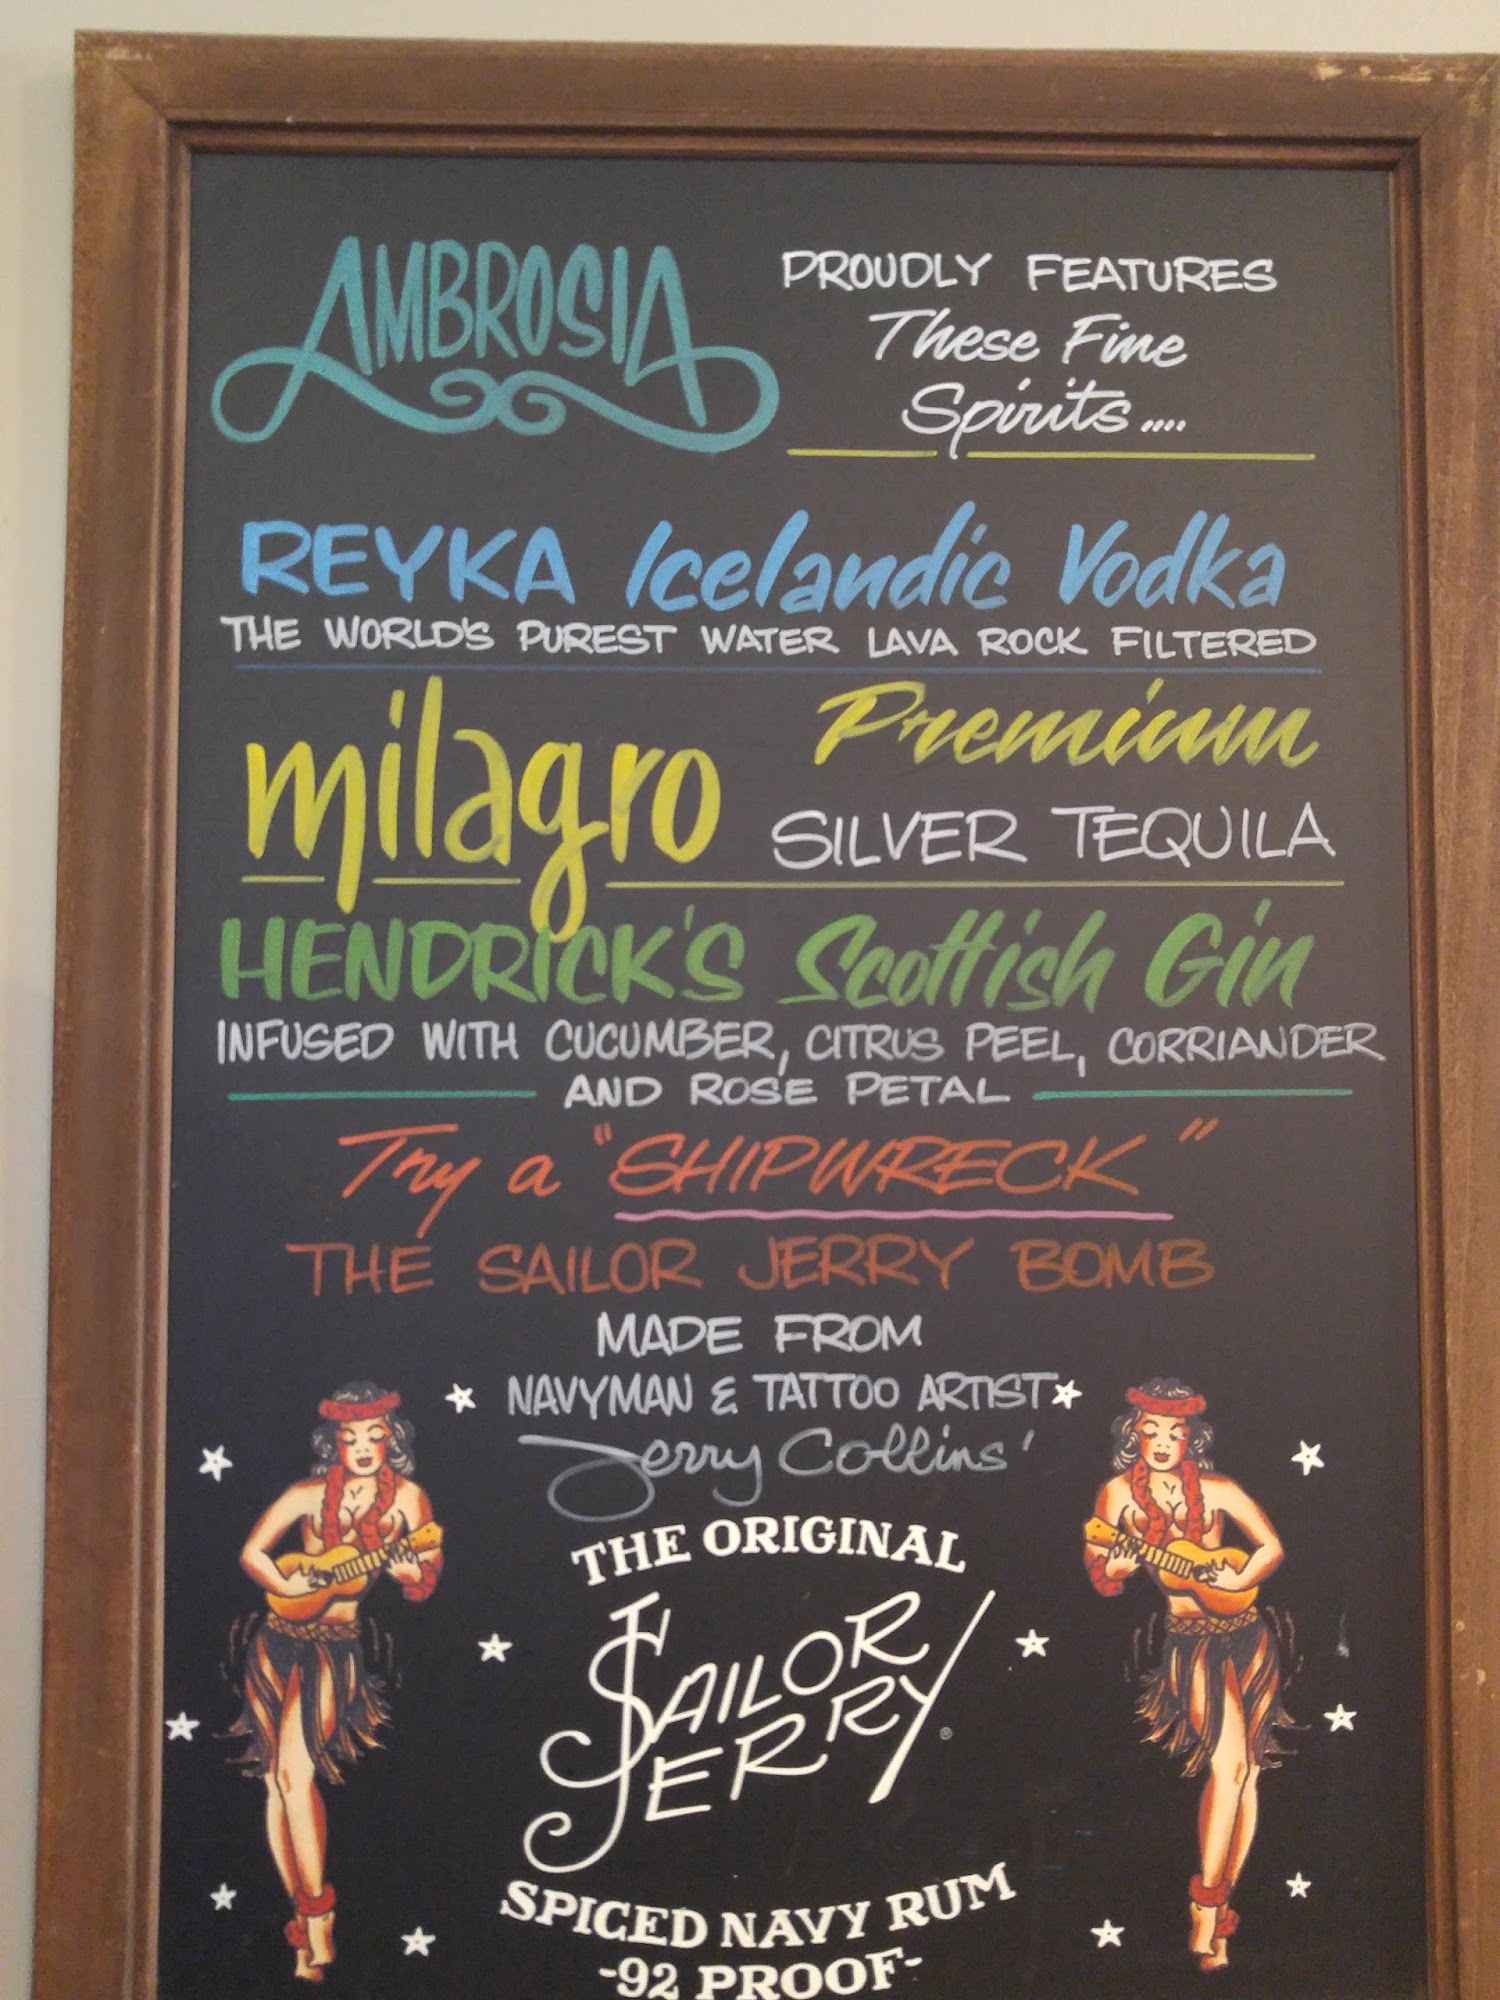 AMBROSIA
PROUDLY FEATURES
These Fine
Spirits....
REYKA Icelandic Vodka
THE WORLD'S PUREST WATER LAVA ROCK FILTERED
milagro
Premium
SILVER TEQUILA
HENDRICK'S Scottish Gin
INFUSED WITH CUCUMBER, CITRUS PEEL, CORRIANDER
AND ROSE PETAL
Try a "SHIPWRECK"
THE SAILOR JERRY BOMB
MADE FROM
NAVYMAN & TATTOO ARTIST
Jerry Collins'
THE ORIGINAL
SAILOR
JERRY®
SPICED NAVY RUM
-92 PROOF-